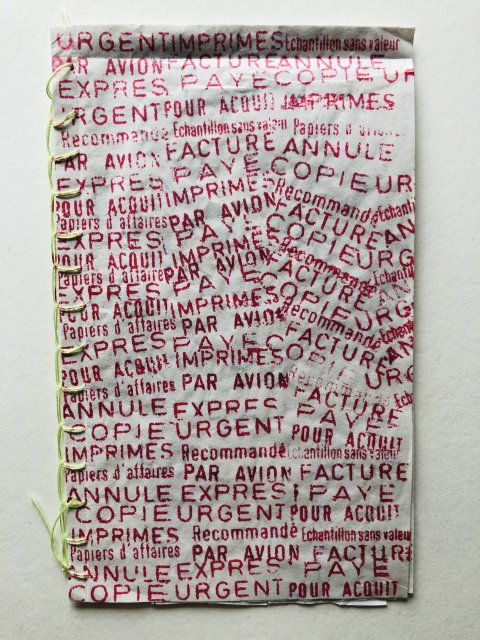 URGENT IMPRIMES Echantillon sans valeur
PAR AVION FACTURE ANNULE
EXPRES PAYE COPIE UR
URGENT POUR ACQUIT IMPRIMES
Recommandé Echantillon sans valeur Papiers d'affaires
PAR AVION FACTURE ANNULE
EXPRES PAYE COPIE UR
POUR ACQUIT IMPRIMES Recommandé Echanti
Papiers d'affaires PAR AVION FACTURE AN
EXPRES PAYE COPIE URG
POUR ACQUIT IMPRIMES Recommandé Echantil
Papiers d'affaires PAR AVION FACTURE AN
EXPRES PAYE COPIE URG
POUR ACQUIT IMPRIMES Recommandé Echan
Papiers d'affaires PAR AVION FACTURE AN
EXPRES PAYE COPIE URG
POUR ACQUIT IMPRIMES Recommandé
Papiers d'affaires PAR AVION FACTURE
ANNULE EXPRES PAYE
COPIE URGENT POUR ACQUIT
IMPRIMES Recommandé Echantillon sans valeur
Papiers d'affaires PAR AVION FACTURE
ANNULE EXPRES PAYE
COPIE URGENT POUR ACQUIT
IMPRIMES Recommandé Echantillon sans valeur
Papiers d'affaires PAR AVION FACTURE
ANNULE EXPRES PAYE
COPIE URGENT POUR ACQUIT